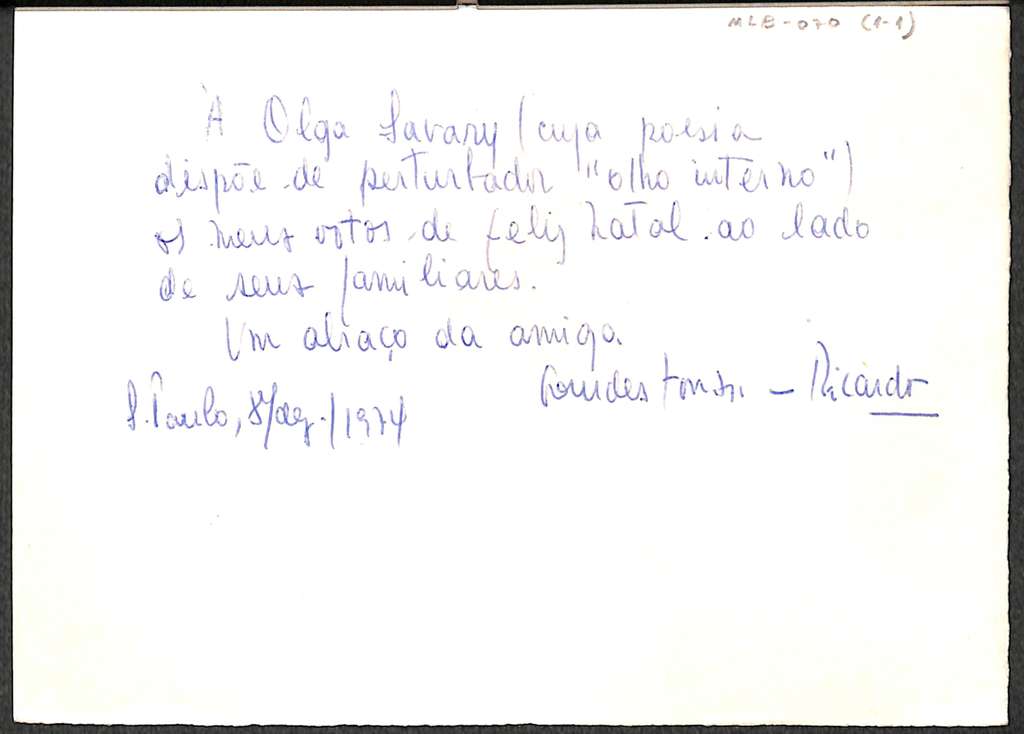 MLB-070 (1-1)
À Olga Savary (cuja poesia
dispõe de perturbador "olho interno")
os meus votos de feliz Natal ao lado
de seus familiares.
Um abraço da amiga
Ricardo
S. Paulo, 8/dez./1974